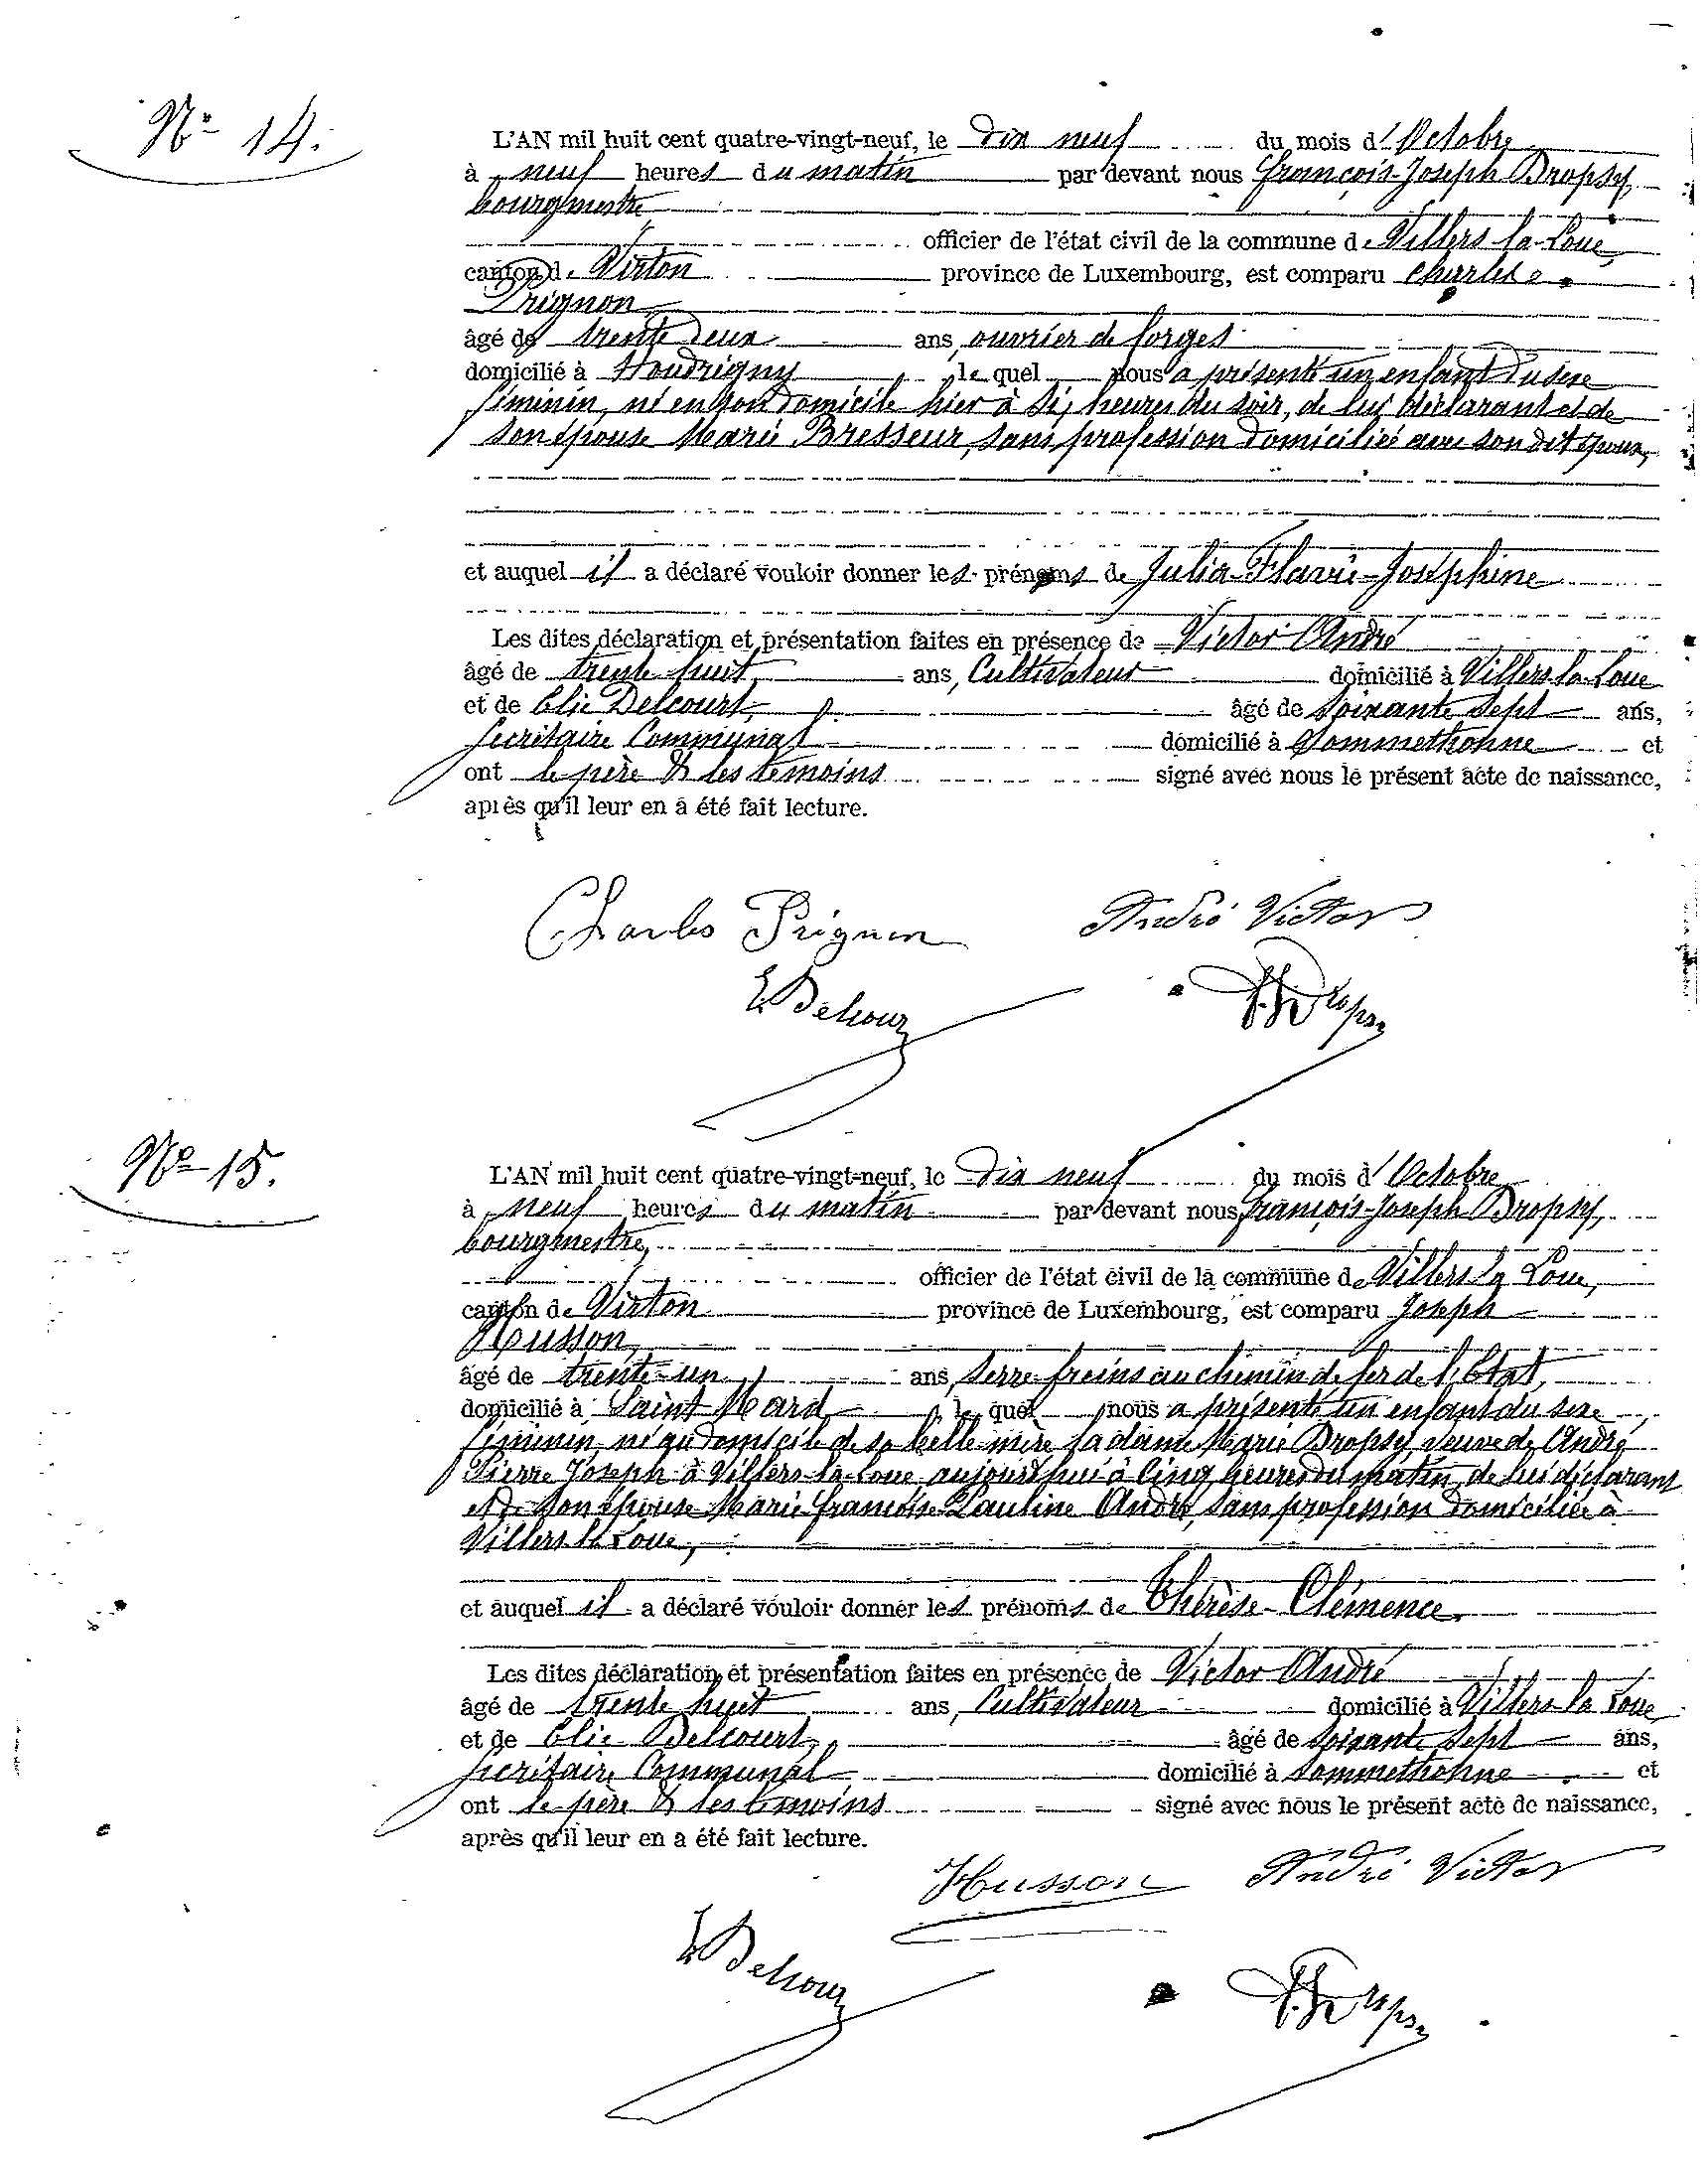 N° 14.
L'AN mil huit cent quatre-vingt-neuf, le dix neuf du mois d'Octobre
à neuf heures du matin par devant nous François-Joseph Dropsy,
bourgmestre
officier de l'état civil de la commune de Villers-la-Loue,
canton de Virton province de Luxembourg, est comparu Charles
Prignon,
âgé de trente deux ans, ouvrier de forges
domicilié à Houdrigny lequel nous a présenté un enfant du sexe
féminin, né en son domicile hier à six heures du soir, de lui déclarant et de
son épouse Marie Bresseur, sans profession domiciliée avec son dit époux,
et auquel il a déclaré vouloir donner les prénoms de Julia-Flavie-Joséphine
Les dites déclaration et présentation faites en présence de Victor André
âgé de trente huit ans, Cultivateur domicilié à Villers-la-Loue
et de Elie Delcourt, âgé de soixante sept ans,
Secrétaire Communal domicilié à Sommethonne et
ont le père & les témoins signé avec nous le présent acte de naissance,
après qu'il leur en a été fait lecture.
Charles Prignon André Victor
E Delcour F.J. Dropsy
N° 15.
L'AN mil huit cent quatre-vingt-neuf, le dix neuf du mois d'Octobre
à neuf heures du matin par devant nous François-Joseph Dropsy,
bourgmestre,
officier de l'état civil de la commune de Villers la Loue,
canton de Virton province de Luxembourg, est comparu Joseph
Husson,
âgé de trente-un ans, serre-freins au chemin de fer de l'Etat,
domicilié à Saint Mard lequel nous a présenté un enfant du sexe
féminin, né au domicile de sa belle-mère la dame Marie Dropsy, veuve de André
Pierre Joseph à Villers-la-Loue aujourd'hui à cinq heures du matin, de lui déclarant
et de son épouse Marie-Françoise-Pauline André, sans profession domiciliée à
Villers-la-Loue,
et auquel il a déclaré vouloir donner les prénoms de Thérèse-Clémence.
Les dites déclaration et présentation faites en présence de Victor André
âgé de trente huit ans, Cultivateur domicilié à Villers la Loue
et de Elie Delcourt, âgé de soixante sept ans,
Secrétaire Communal domicilié à Sommethonne et
ont le père & les témoins signé avec nous le présent acte de naissance,
après qu'il leur en a été fait lecture.
Husson André Victor
E Delcour F.J. Dropsy